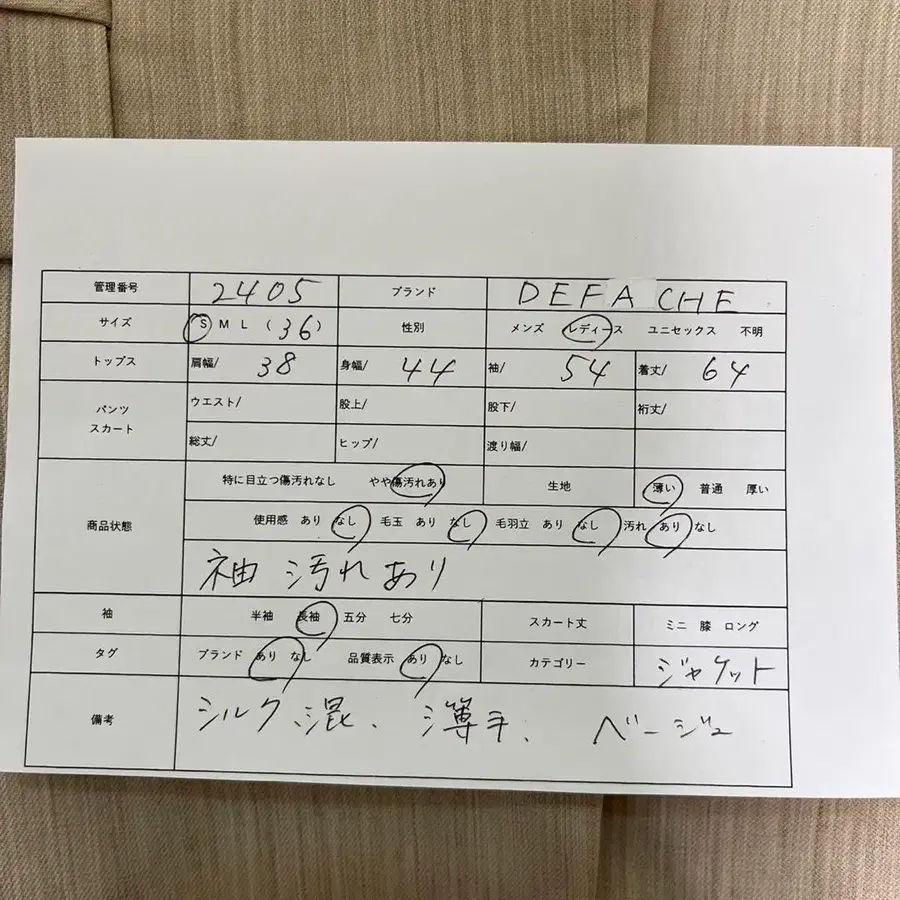 管理番号 2405 ブランド DEFACHE
サイズ S M L (36) 性別 メンズ レディース ユニセックス 不明
トップス 肩幅/ 38 身幅/ 44 袖/ 54 着丈/ 64
パンツ スカート ウエスト/ 股上/ 股下/ 裄丈/
総丈/ ヒップ/ 渡り幅/
商品状態 特に目立つ傷汚れなし やや傷汚れあり 生地 薄い 普通 厚い
使用感 あり なし 毛玉 あり なし 毛羽立 あり なし 汚れ あり なし
袖 汚れあり
袖 半袖 長袖 五分 七分 スカート丈 ミニ 膝 ロング
タグ ブランド あり なし 品質表示 あり なし カテゴリー ジャケット
備考 シルク混、薄手、ベージュ